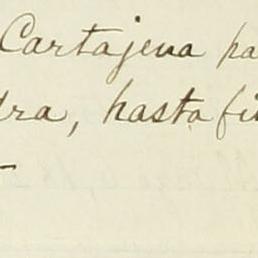 Cartajena pa
dra, hasta fi